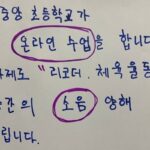 중앙 초등학교가
온라인 수업을 합니다
제도 " 리코더. 체육활동
간의 소음 양해
립니다.